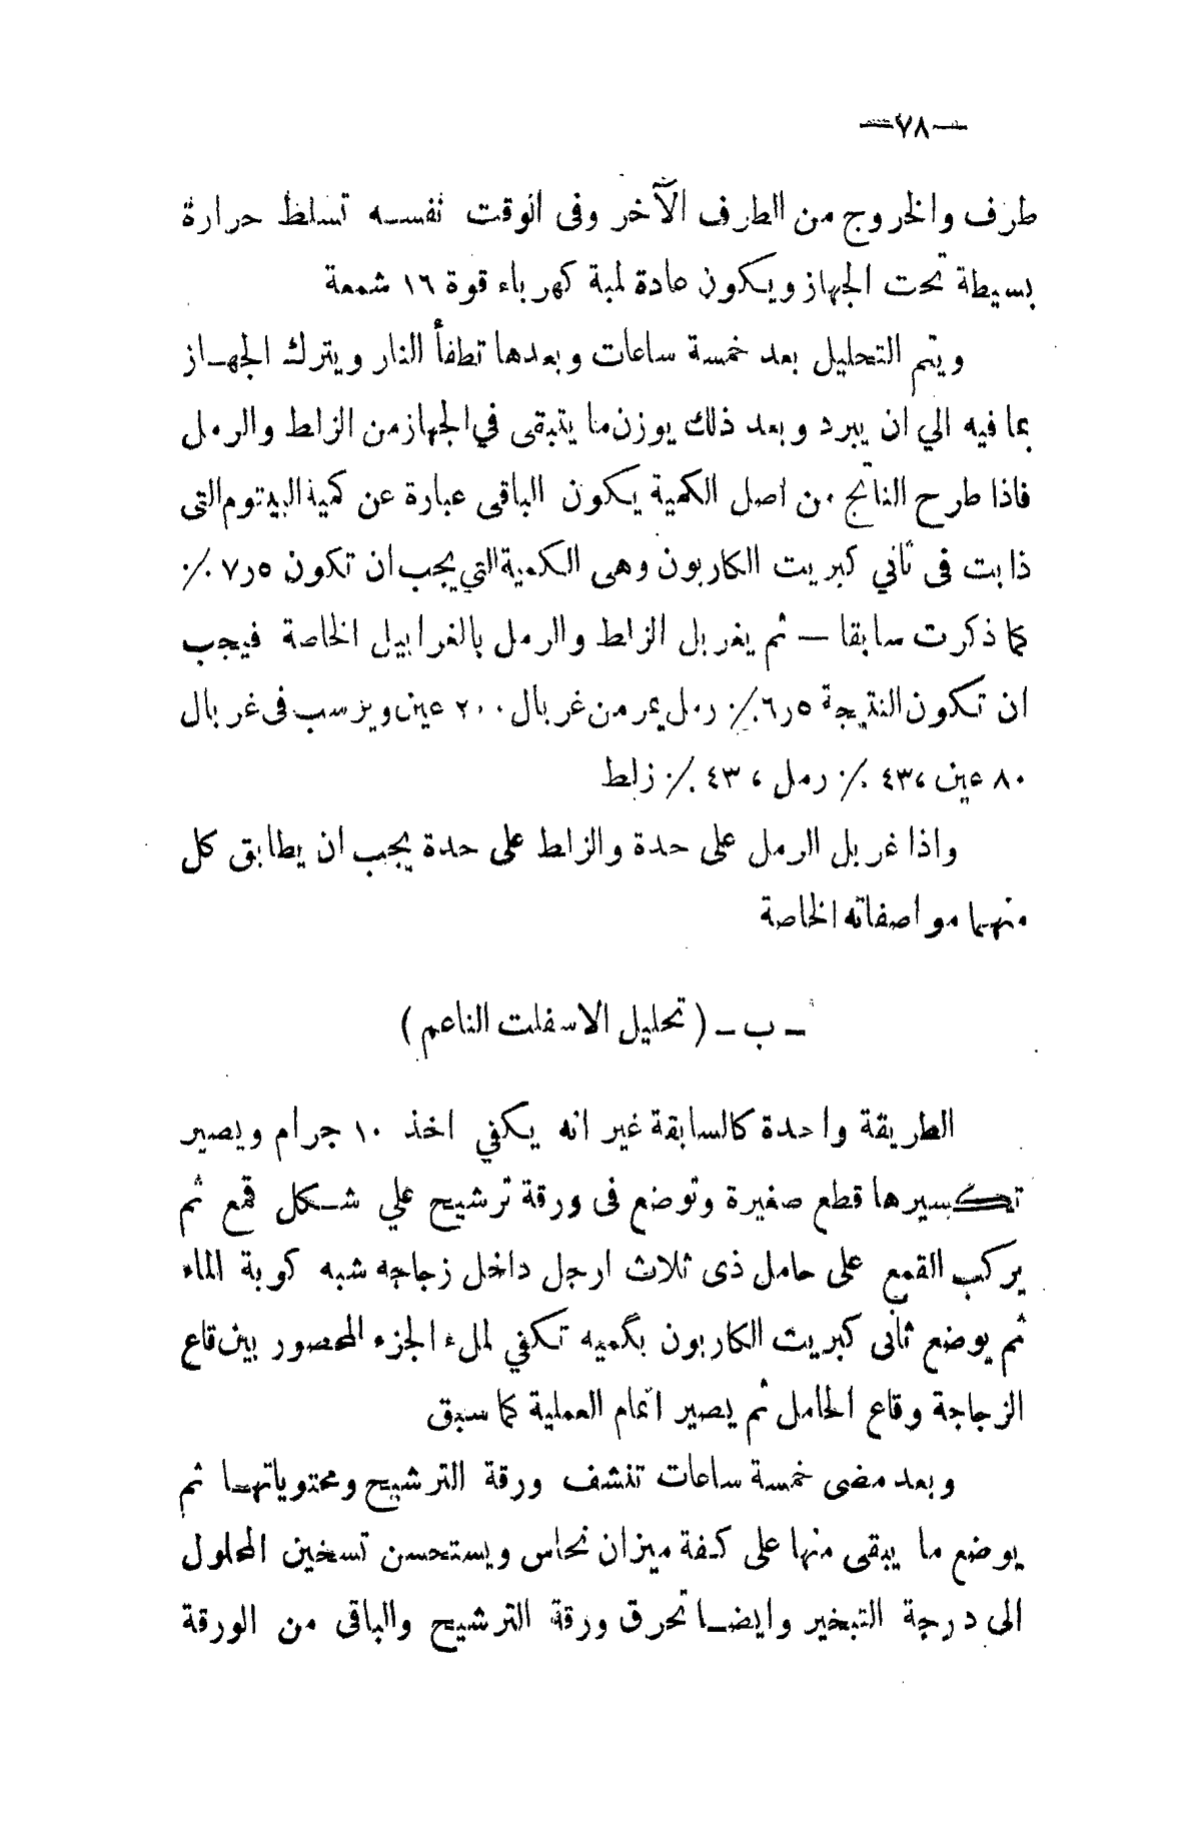 —٧٨—
طرف والخروج من الطرف الآخر وفى الوقت نفسه تسلط حرارة
بسيطة تحت الجهاز ويكون عادة لمبة كهرباء قوة ١٦ شمعة
ويتم التحليل بعد خمسة ساعات وبعدها تطفأ النار ويترك الجهاز
بما فيه الي ان يبرد وبعد ذلك يوزن ما يتبقى في الجهاز من الزلط والرمل
فاذا طرح الناتج من اصل الكمية يكون الباقى عبارة عن كمية البيتوم التى
ذابت فى ثاني كبريت الكاربون وهى الكمية التي يجب ان تكون ٧٫٥ ٪
كما ذكرت سابقا — ثم يغربل الزلط والرمل بالغرابيل الخاصة فيجب
ان تكون النتيجة ٦٫٥ ٪ رمل يمر من غربال ٢٠٠ عين ويرسب فى غربال
٨٠ عين ، ٤٣ ٪ رمل ، ٤٣ ٪ زلط
واذا غربل الرمل على حدة والزلط على حدة يجب ان يطابق كل
منهما مواصفاته الخاصة
– ب – ( تحليل الاسفلت الناعم )
الطريقة واحدة كالسابقة غير انه يكفي اخذ ١٠ جرام ويصير
تكسيرها قطع صغيرة وتوضع فى ورقة ترشيح علي شكل قمع ثم
يركب القمع على حامل ذى ثلاث ارجل داخل زجاجه شبه كوبة الماء
ثم يوضع ثانى كبريت الكاربون بكميه تكفي لملء الجزء المحصور بين قاع
الزجاجة وقاع الحامل ثم يصير اتمام العملية كما سبق
وبعد مضى خمسة ساعات تنشف ورقة الترشيح ومحتوياتها ثم
يوضع ما يبقى منها على كفة ميزان نحاس ويستحسن تسخين المحلول
الى درجة التبخير وايضا تحرق ورقة الترشيح والباقى من الورقة